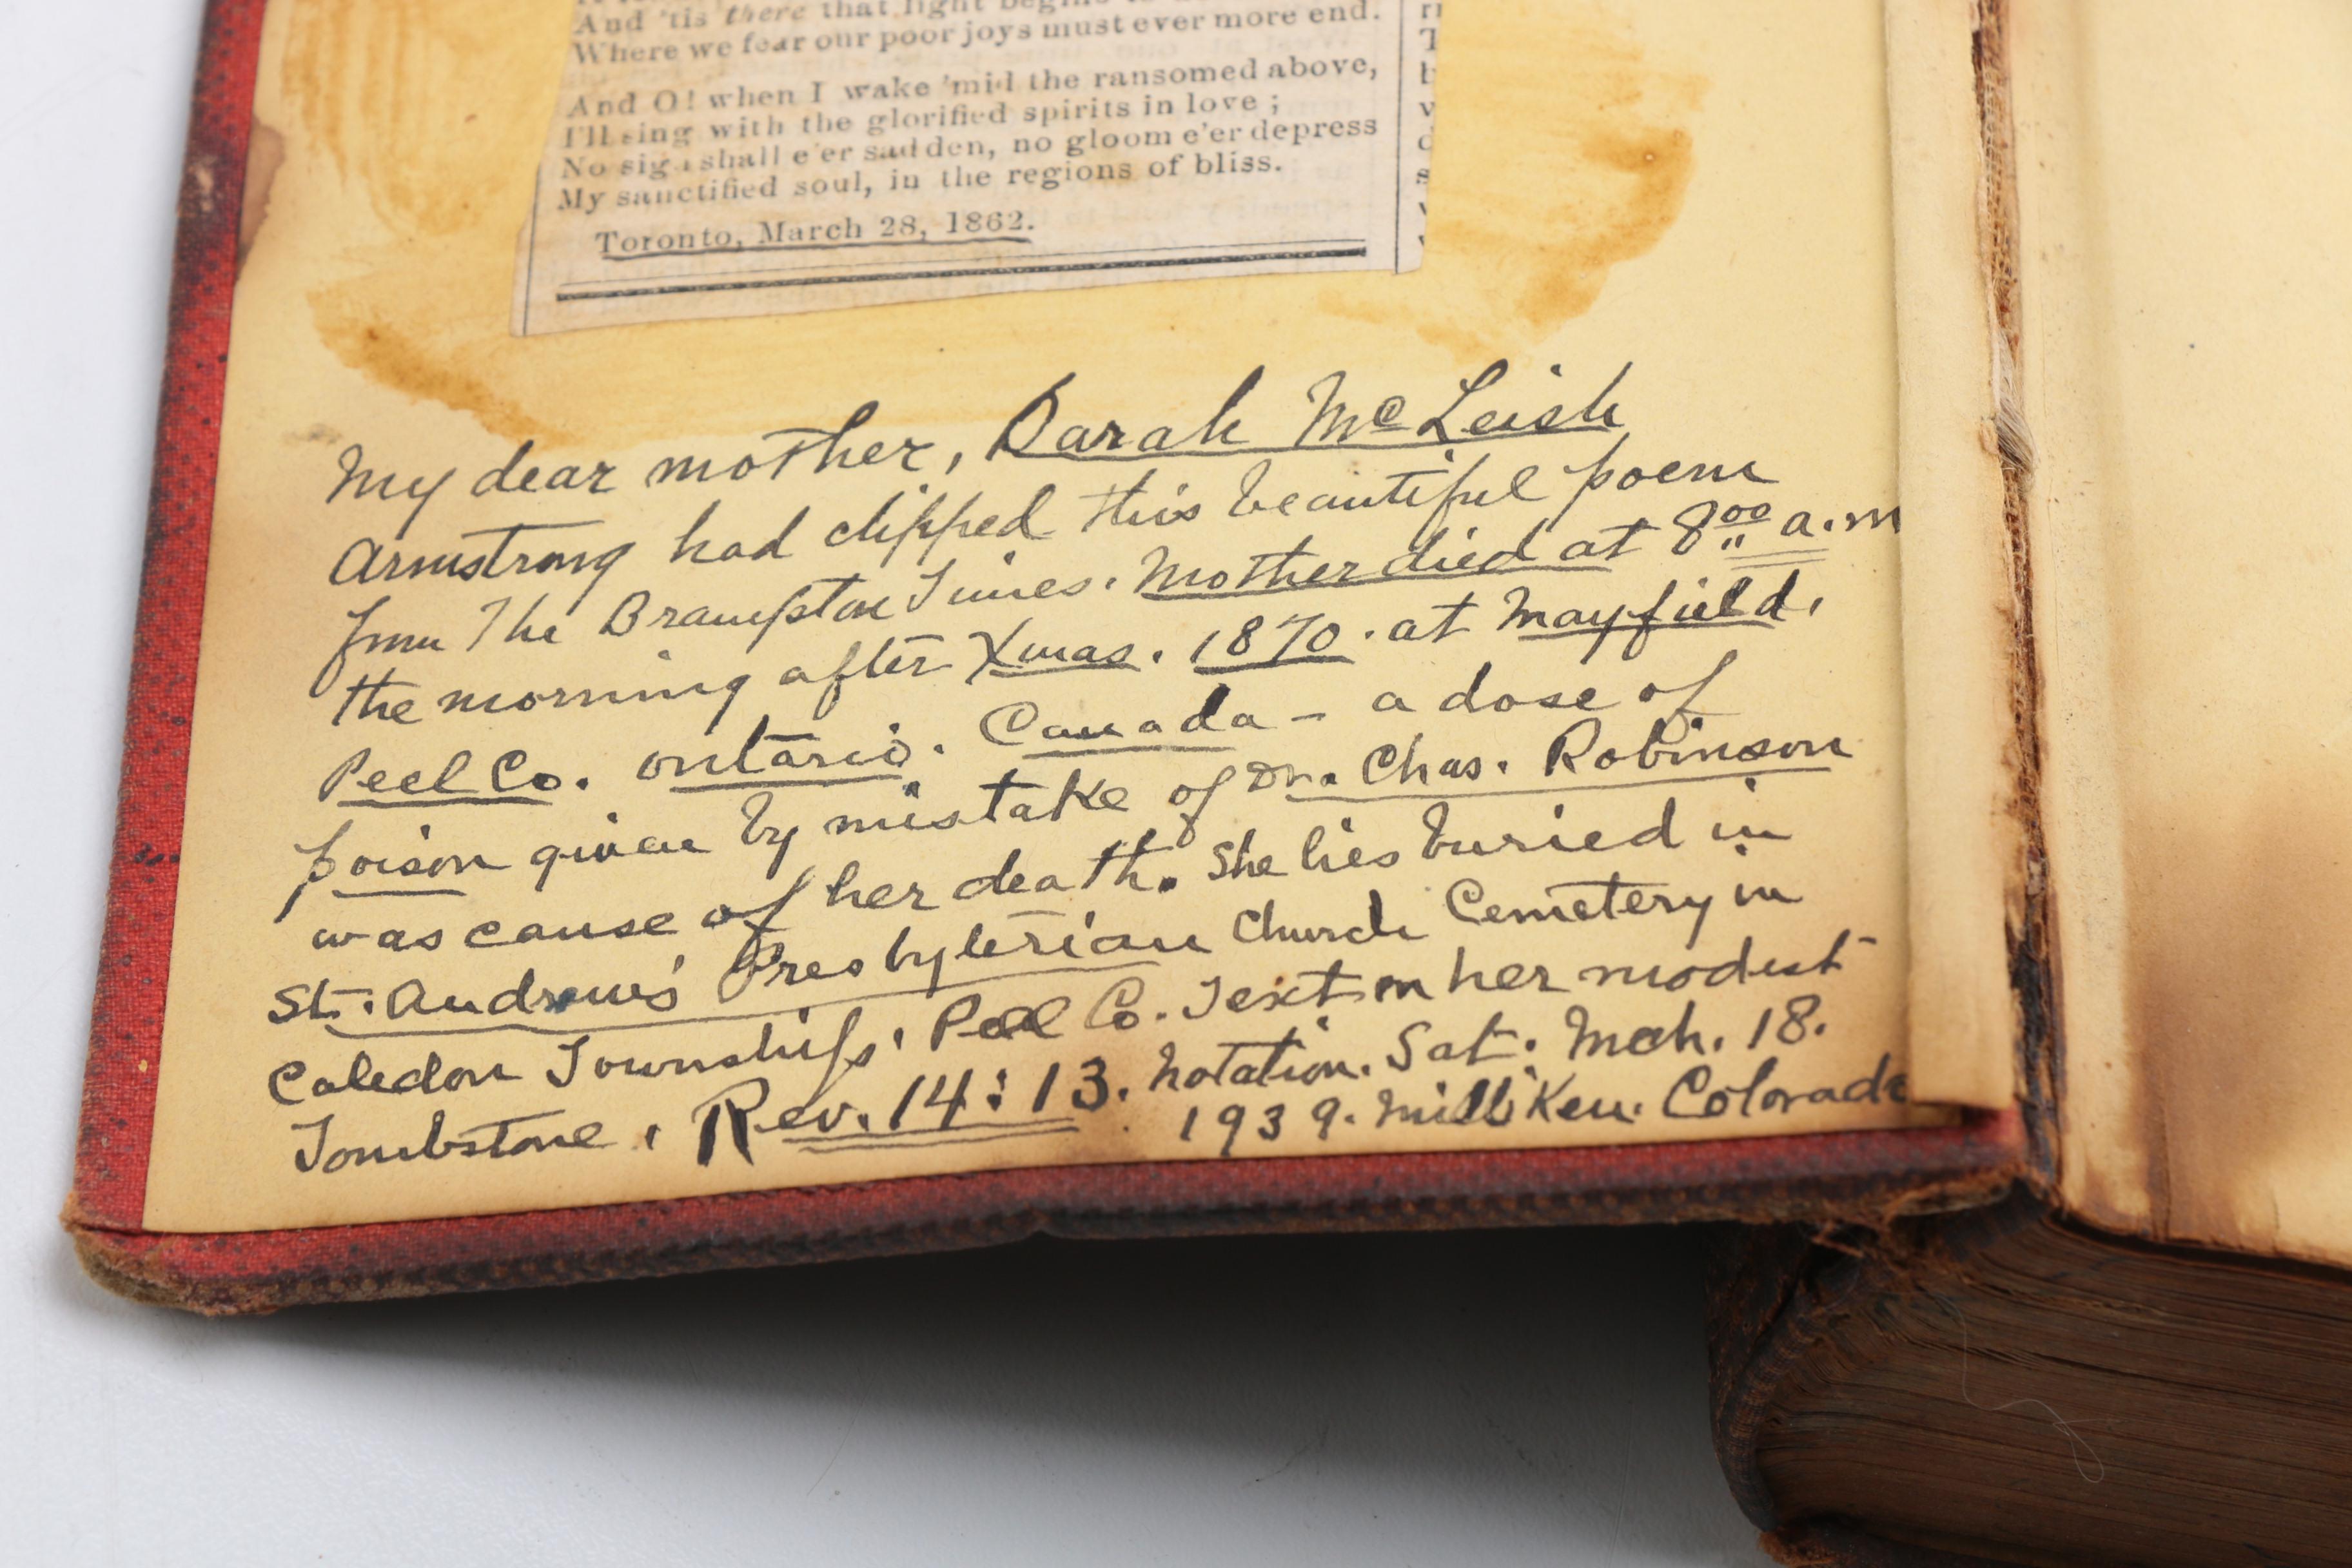 And 'tis there that light begins to
Where we fear our poor joys must ever more end.
And O! when I wake 'mid the ransomed above,
I'll sing with the glorified spirits in love ;
No sigh shall e'er sadden, no gloom e'er depress
My sanctified soul, in the regions of bliss.
Toronto, March 28, 1862.
My dear mother, Sarah McLeish
Armstrong had clipped this beautiful poem
from The Brampton Times. Mother died at 8 00 a.m
the morning after Xmas. 1870. at Mayfield.
Peel Co. Ontario. Canada - a dose of
poison given by mistake of Dr. Chas. Robinson
was cause of her death. She lies buried in
St. Andrew's Presbyterian Church Cemetery in
Caledon Township, Peel Co. Text on her modest
Tombstone, Rev. 14:13. Notation. Sat. Mch. 18.
1939. Milliken. Colorado